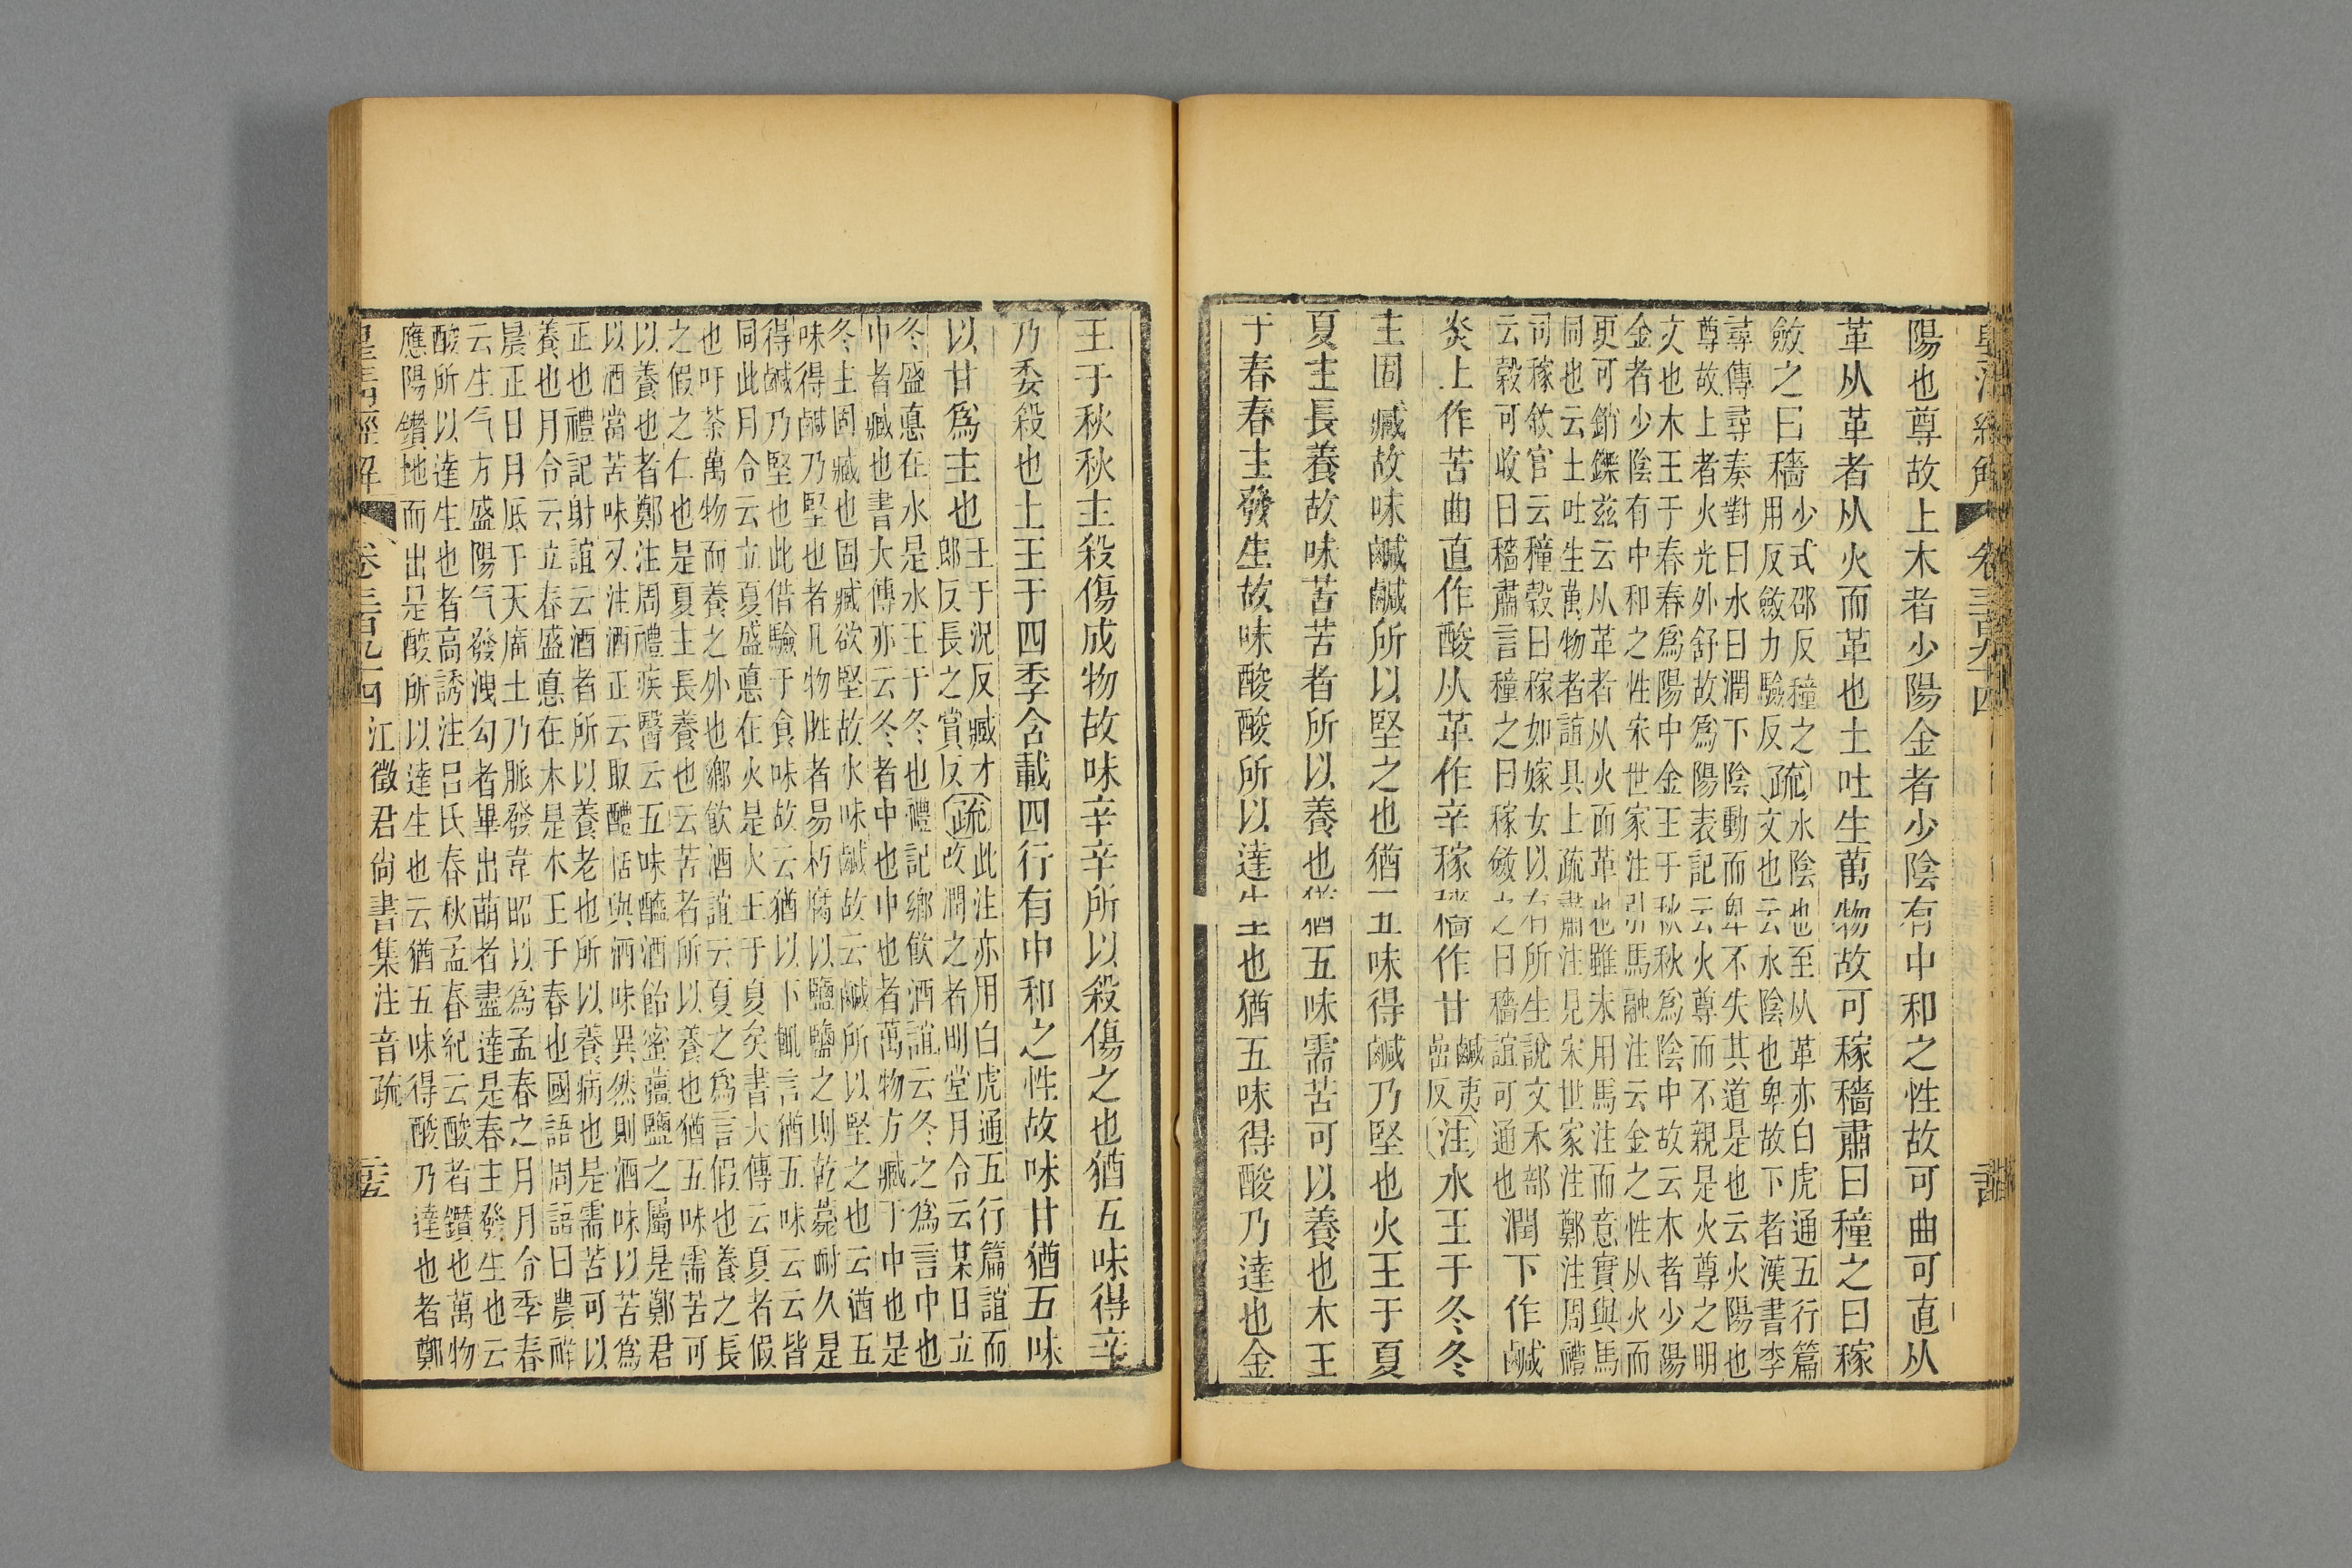 皇清經解 卷三百九十四
陽也尊故上木者少陽金者少陰有中和之性故可曲可直从
革从革者从火而革也土吐生萬物故可稼穡肅曰種之曰稼
斂之曰穡
少式邵反種之
用反斂力驗反
疏
水陰也至从革亦白虎通五行篇
文也云水陰也卑故下者漢書李
尋傳尋奏對曰水曰潤下陰動而卑不失其道是也云火陽也
尊故上者火光外舒故爲陽表記云火尊而不親是火尊之明
文也木王于春春爲陽中金王于秋秋爲陰中故云木者少陽
金者少陰有中和之性宋世家注引馬融注云金之性从火而
更可銷鑠兹云从革者从火而革也雖未用馬注而意實與馬
同也云土吐生萬物者誼具上疏肅注見宋世家注鄭注周禮
司稼敘官云種穀曰稼如嫁女以有所生說文禾部
云穀可收曰穡肅言種之曰稼斂之曰穡誼可通也
潤下作鹹
炎上作苦曲直作酸从革作辛稼穡作甘
鹹夷
嵒反
注
水王于冬冬
主固臧故味鹹鹹所以堅之也猶五味得鹹乃堅也火王于夏
夏主長養故味苦苦者所以養也猶五味需苦可以養也木王
于春春主發生故味酸酸所以達生也猶五味得酸乃達也金
王于秋秋主殺傷成物故味辛辛所以殺傷之也猶五味得辛
乃委殺也土王于四季含載四行有中和之性故味甘猶五味
以甘爲主也
王于況反臧才
郎反長之賞反
疏
此注亦用白虎通五行篇誼而
改潤之者明堂月令云某日立
冬盛悳在水是水王于冬也禮記鄉飲酒誼云冬之爲言中也
中者臧也書大傳亦云冬者中也中也者萬物方臧于中也是
冬主固臧也固臧欲堅故水味鹹故云鹹所以堅之也云猶五
味得鹹乃堅也者凡物胜者易朽腐以鹽鹽之則乾薧耐久是
得鹹乃堅也此偕驗于食味故云猶以下輒言猶五味云云皆
同此月令云立夏盛悳在火是火王于夏矣書大傳云夏者假
也吁荼萬物而養之外也鄉飲酒誼云夏之爲言假也養之長
之假之仁也是夏主長養也云苦者所以養也猶五味需苦可
以養也者鄭注周禮疾醫云五味醯酒飴蜜薑鹽之屬是鄭君
以酒當苦味又注酒正云取醴恬與酒味異然則酒味以苦爲
正也禮記射誼云酒者所以養老也所以養病也是需苦可以
養也月令云立春盛悳在木是木王于春也國語周語曰農祥
晨正日月底于天廟土乃脈發韋昭以爲孟春之月月令季春
云生气方盛陽气發洩勾者畢出萌者盡達是春主發生也云
酸所以達生也者高誘注呂氏春秋孟春紀云酸者鑽也萬物
應陽鑽地而出是酸所以達生也云猶五味得酸乃達也者鄭
皇清經解 卷三百九十四 江徵君尚書集注音疏